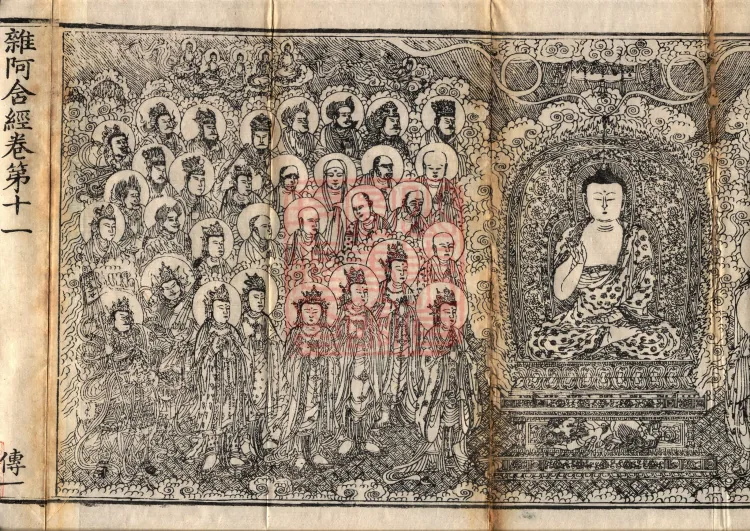 雜阿含經卷第十一
傳一